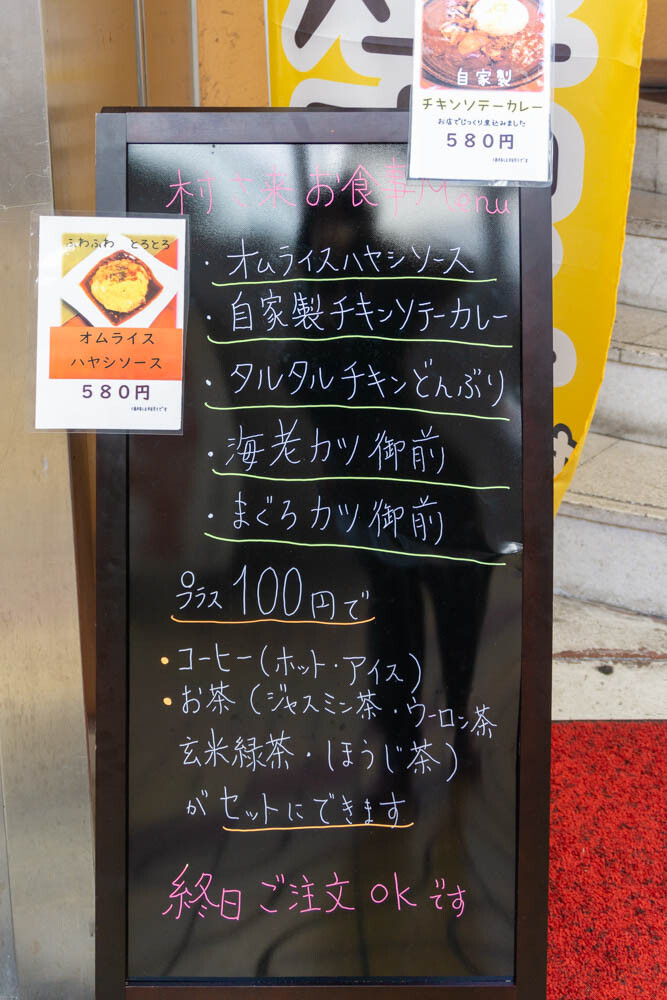 自家製
チキンソテーカレー
お店でじっくり煮込みました
580円
ふわふわ とろとろ
オムライス
ハヤシソース
580円
村さ来お食事Menu
・オムライスハヤシソース
・自家製チキンソテーカレー
・タルタルチキンどんぶり
・海老カツ御前
・まぐろカツ御前
プラス100円で
・コーヒー(ホット・アイス)
・お茶(ジャスミン茶・ウーロン茶
玄米緑茶・ほうじ茶)
がセットにできます
終日ご注文okです